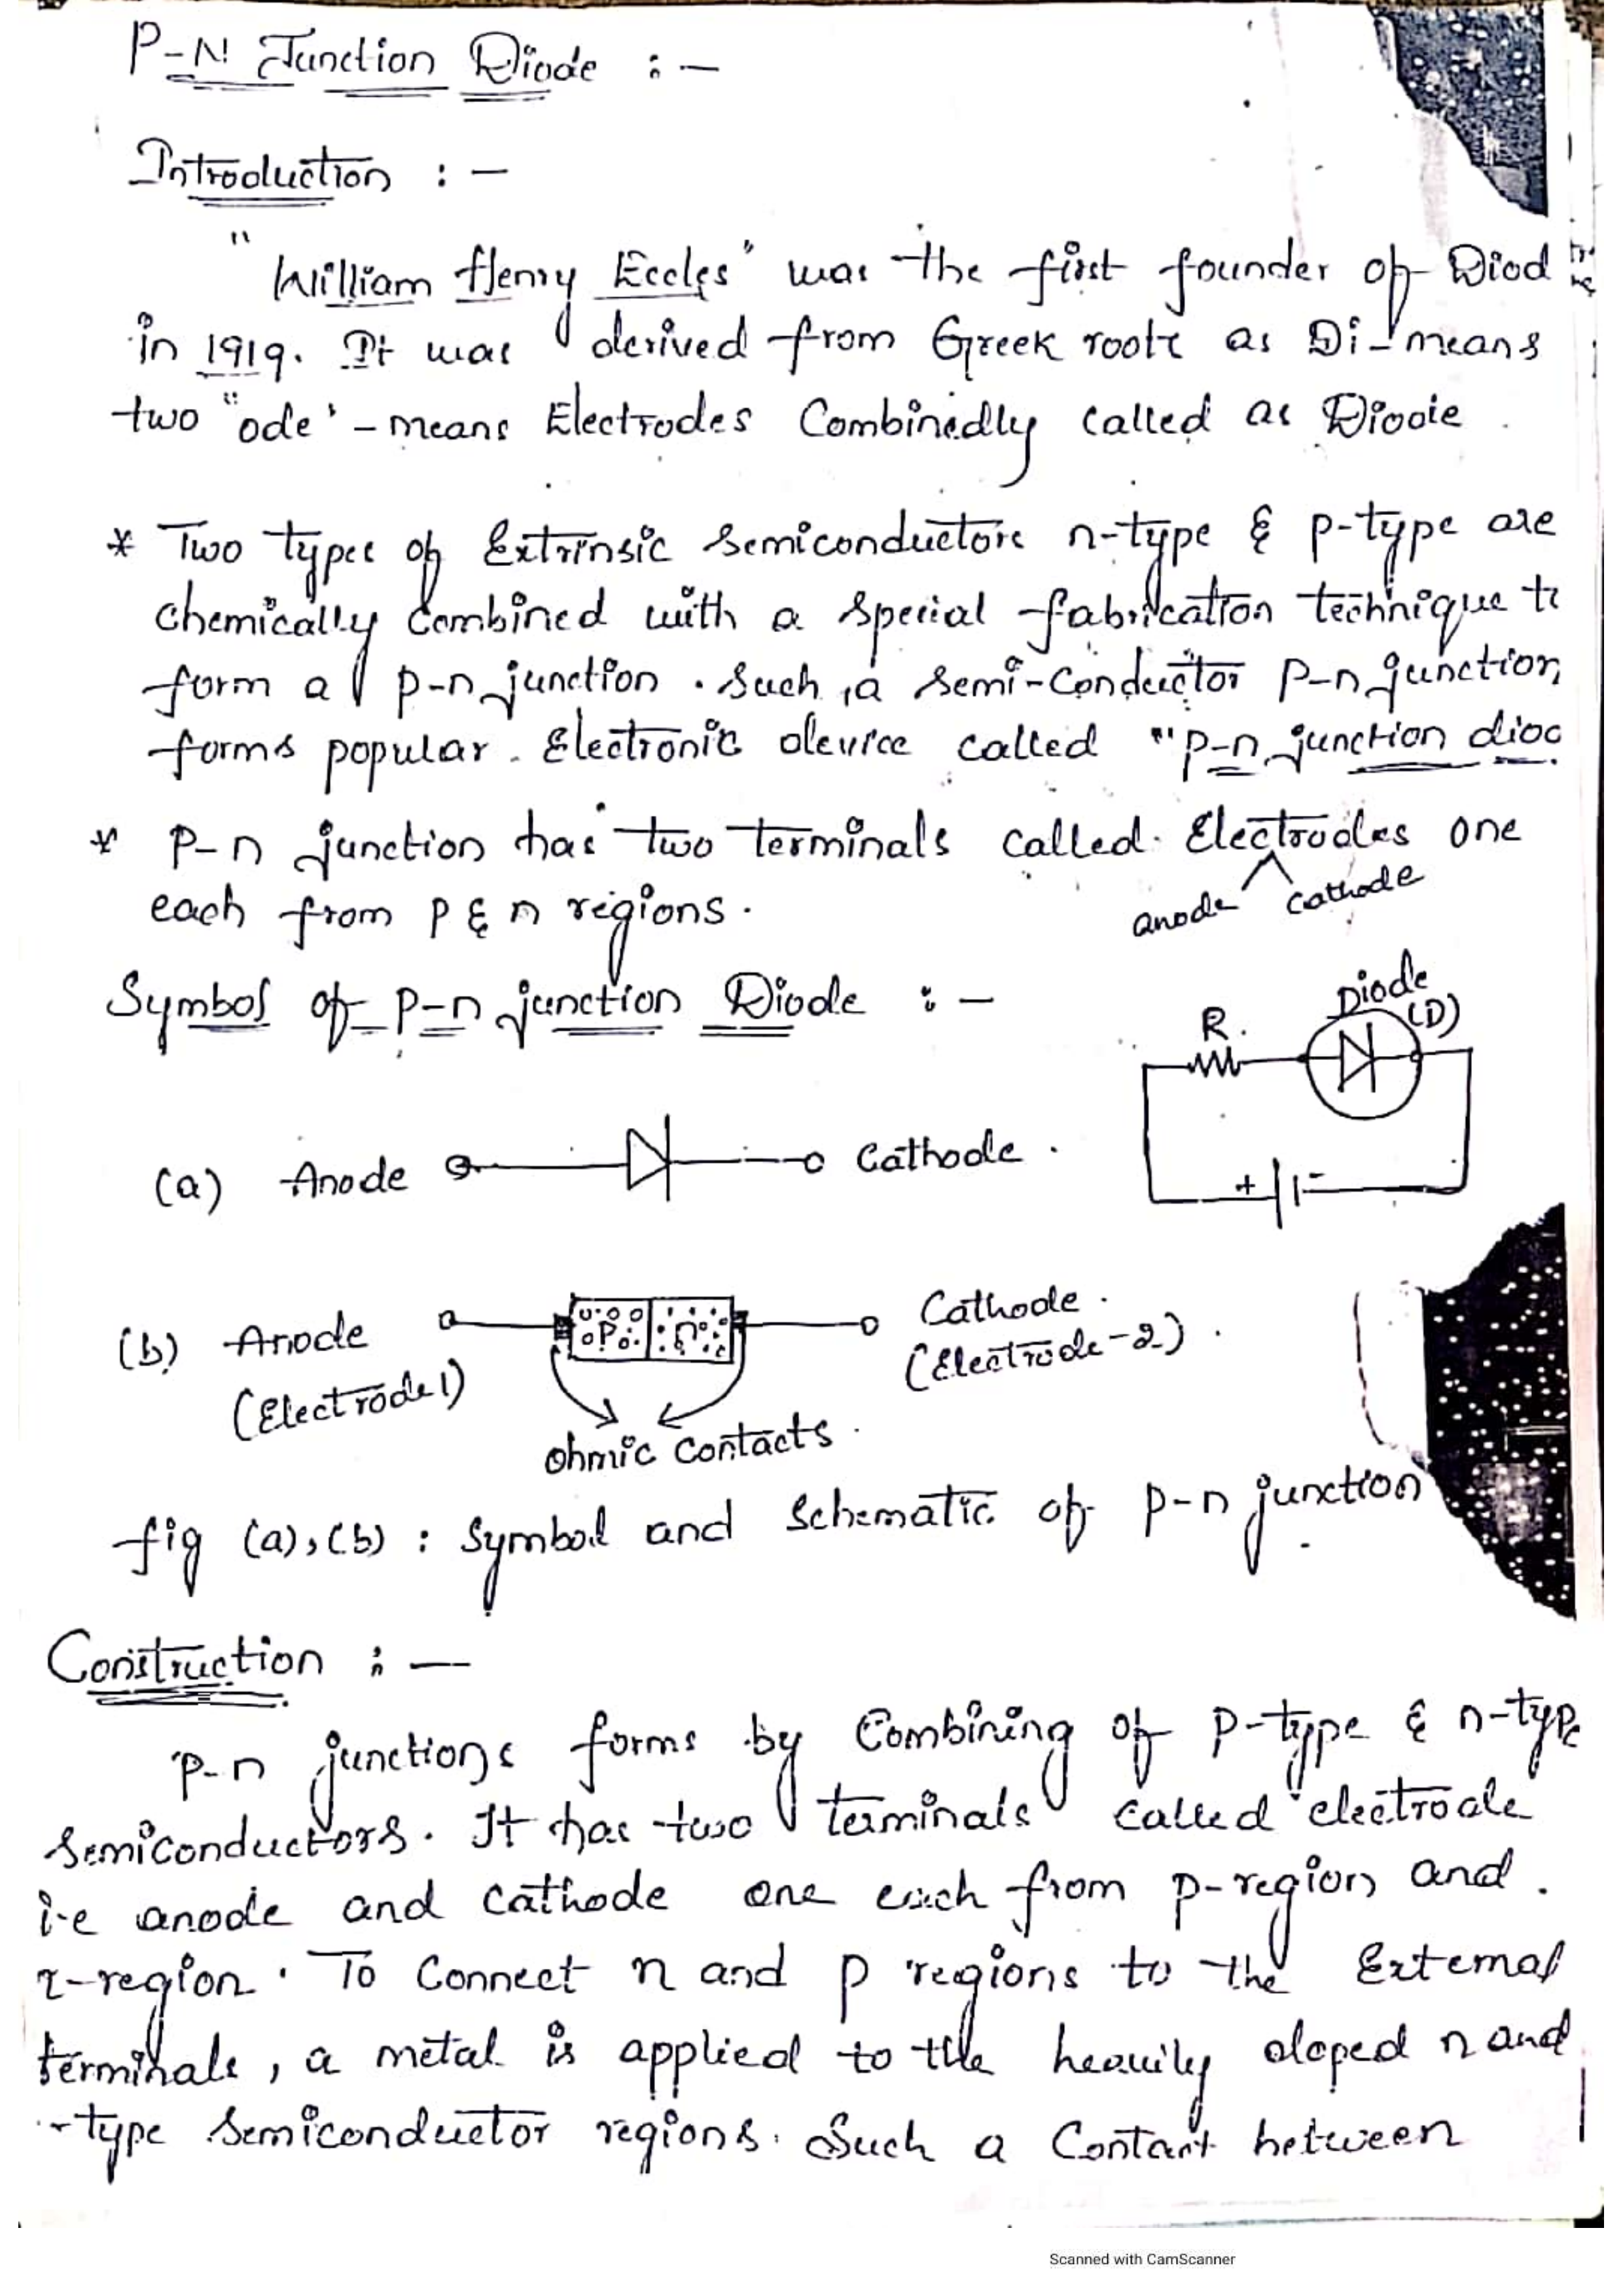 P-N Junction Diode :-
Introduction :-
"William Henry Eccles" was the first founder of Diod
in 1919. It was derived from Greek roots as Di- means
two "ode' - means Electrodes Combinedly called as Diode.
* Two types of Extrinsic Semiconductors n-type & p-type are
chemically combined with a special fabrication technique
form a p-n junction. Such a semi-conductor P-n junction
forms popular Electronic device called "p-n junction dio
* P-n junction has two terminals called Electrodes one
anode cathode
each from P & n regions.
Symbol of p-n junction Diode :-
R Diode (D)
+ -
(a) Anode Cathode.
(b) Anode P n Cathode.
(Electrode 1) (Electrode-2).
ohmic contacts.
fig (a),(b) : Symbol and Schematic of p-n junction
Construction :-
p-n junctions forms by Combining of p-type & n-type
semiconductors. It has two terminals called electrode
i.e anode and cathode one each from p-region and
-region. To Connect n and p regions to the External
terminals, a metal is applied to the heavily doped n and
-type Semiconductor regions. Such a Contact between
Scanned with CamScanner